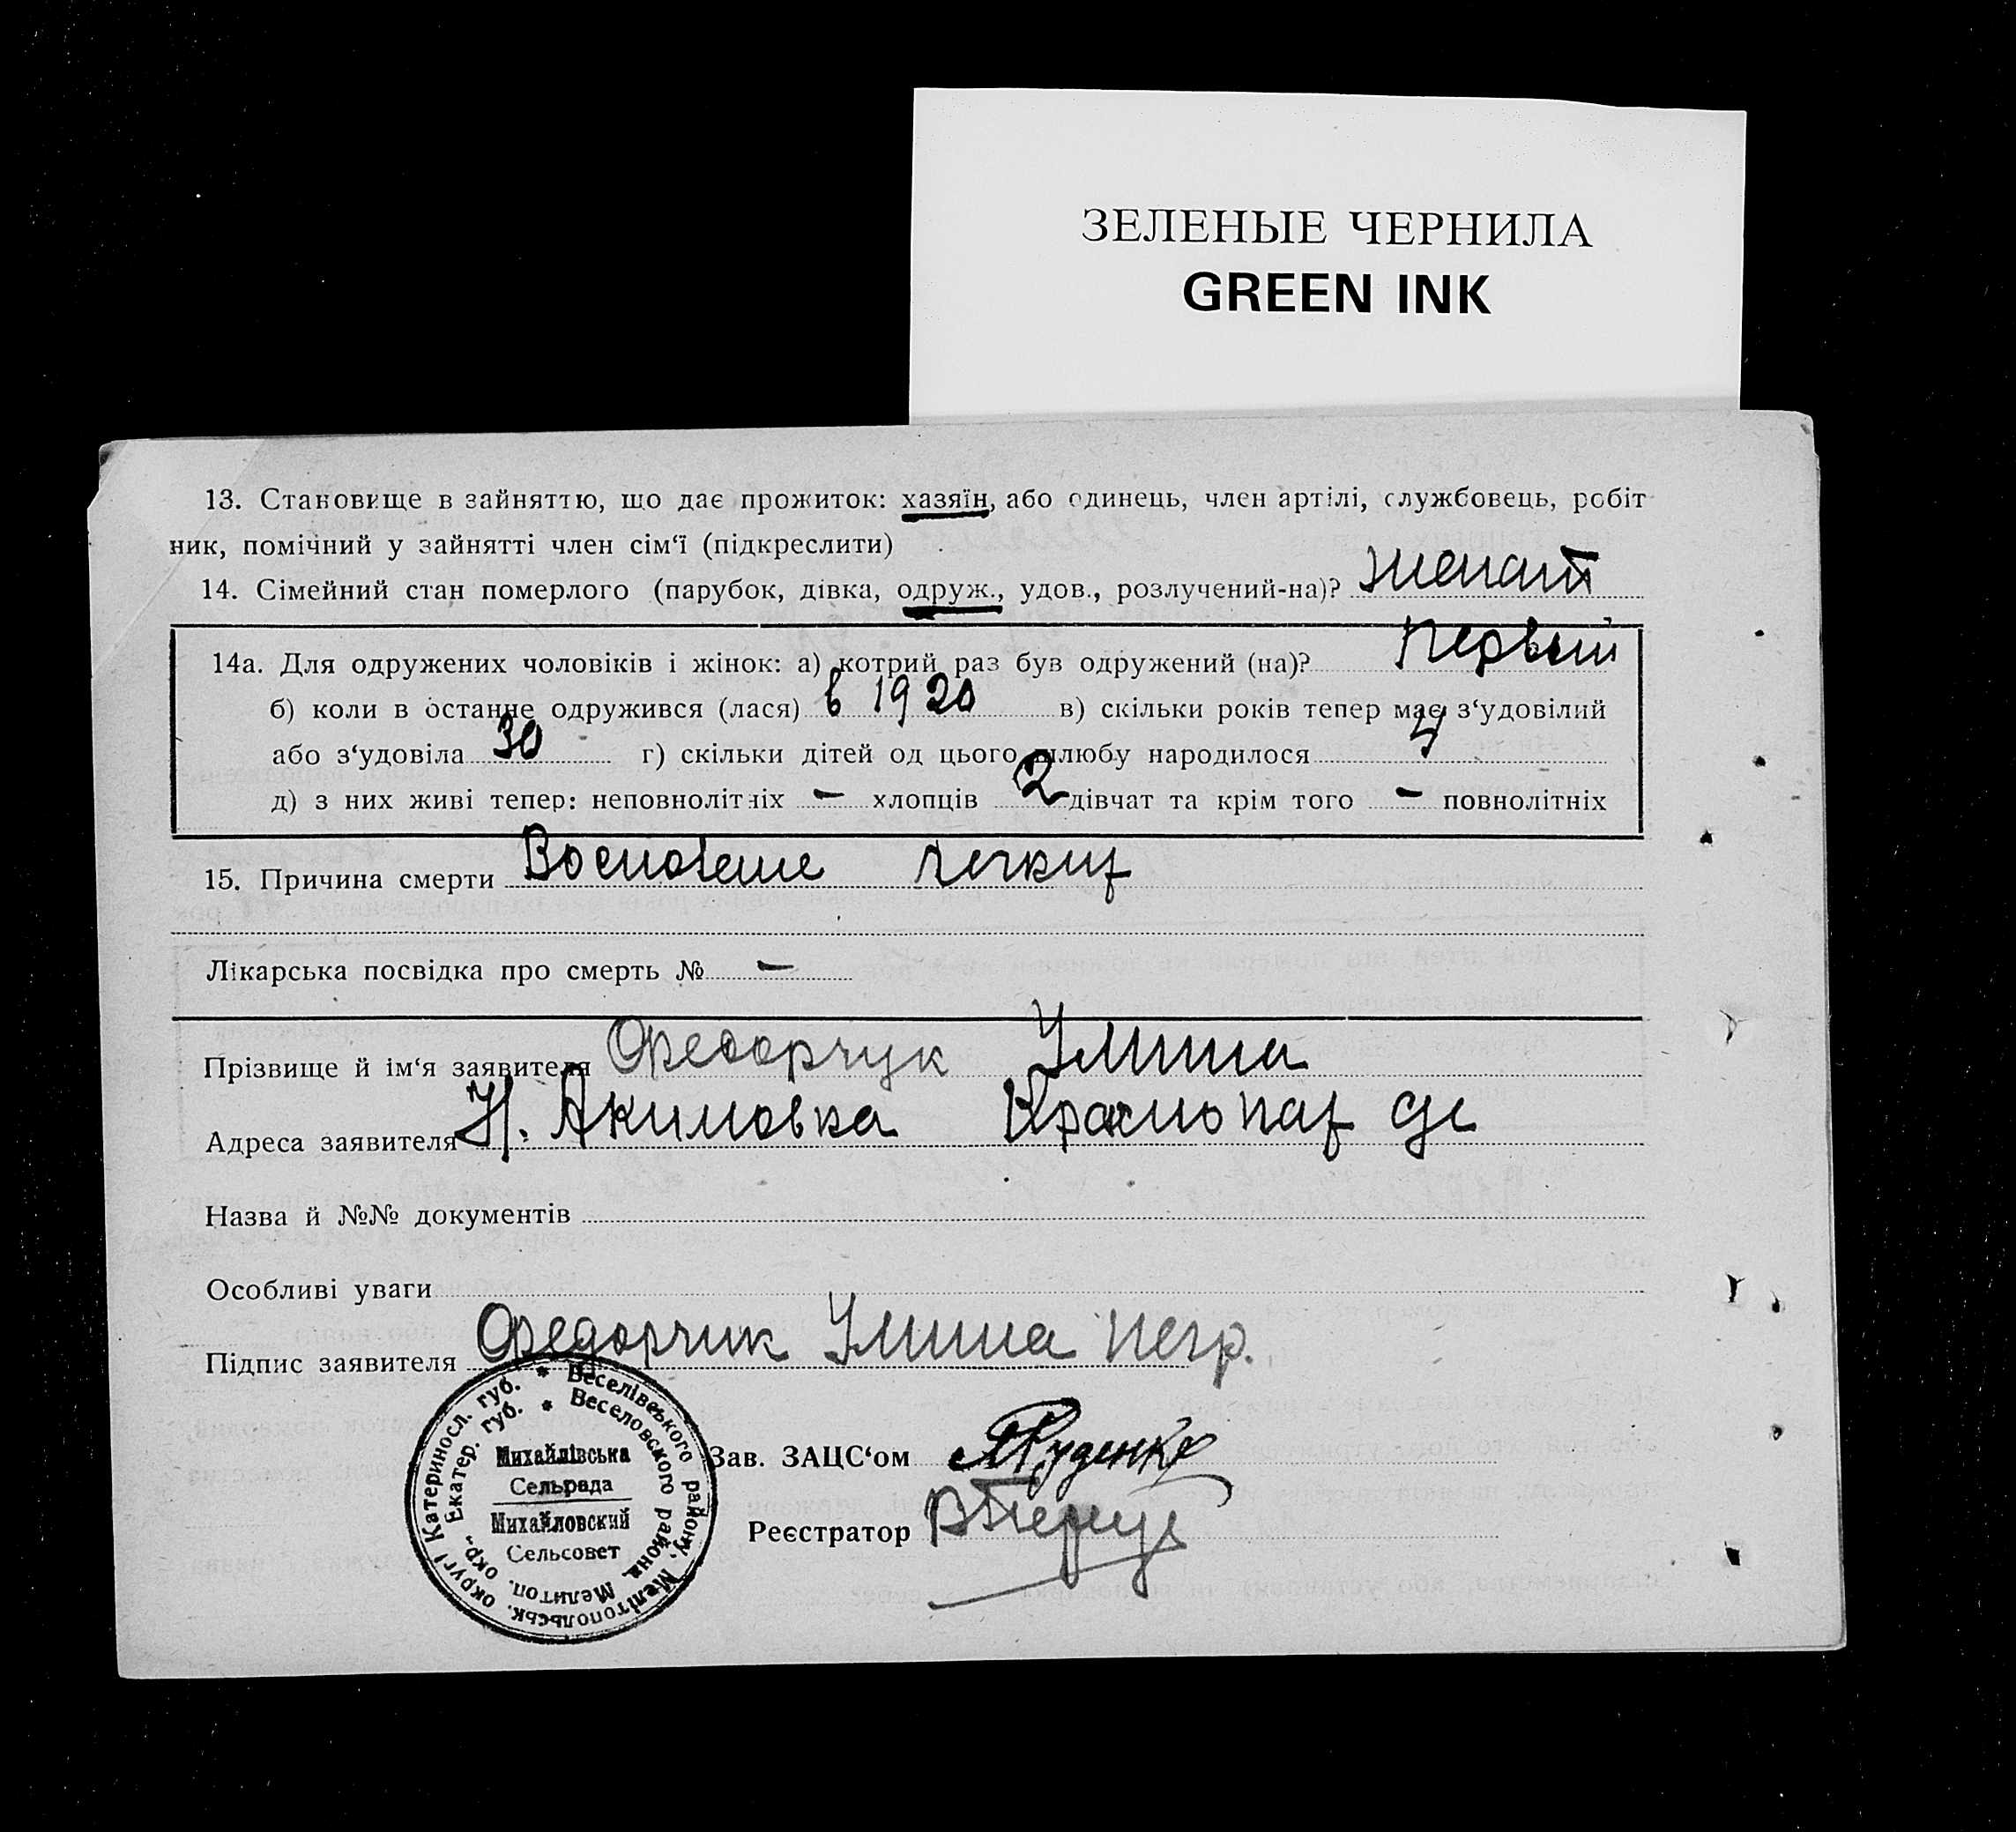 ЗЕЛЕНЫЕ ЧЕРНИЛА
GREEN INK
13. Становище в зайняттю, що дає прожиток: хазяїн, або одинець, член артілі, службовець, робіт
ник, помічний у зайнятті член сім‘ї (підкреслити)
14. Сімейний стан померлого (парубок, дівка, одруж., удов., розлучений-на)? женат
14а. Для одружених чоловіків і жінок: а) котрий раз був одружений (на)? Первый
б) коли в останнє одружився (лася) в 1920 в) скільки років тепер має з‘удовілий
або з‘удовіла 30 г) скільки дітей од цього шлюбу народилося 4
д) з них живі тепер: неповнолітніх — хлопців 2 дівчат та крім того — повнолітніх
15. Причина смерти Восполение легких
Лікарська посвідка про смерть № —
Прізвище й ім‘я заявителя Федорчук Улиша
Адреса заявителя Н. Акимовка
Назва й №№ документів
Особливі уваги
Підпис заявителя Федорчик Улиша Петр.
Зав. ЗАЦС‘ом Руденко
Реєстратор
Катериносл. губ. * Веселівського району, Мелітопольськ. округі
Екатер. губ. * Веселовского района, Мелитоп. окр.
Михайлівська
Сельрада
Михайловский
Сельсовет